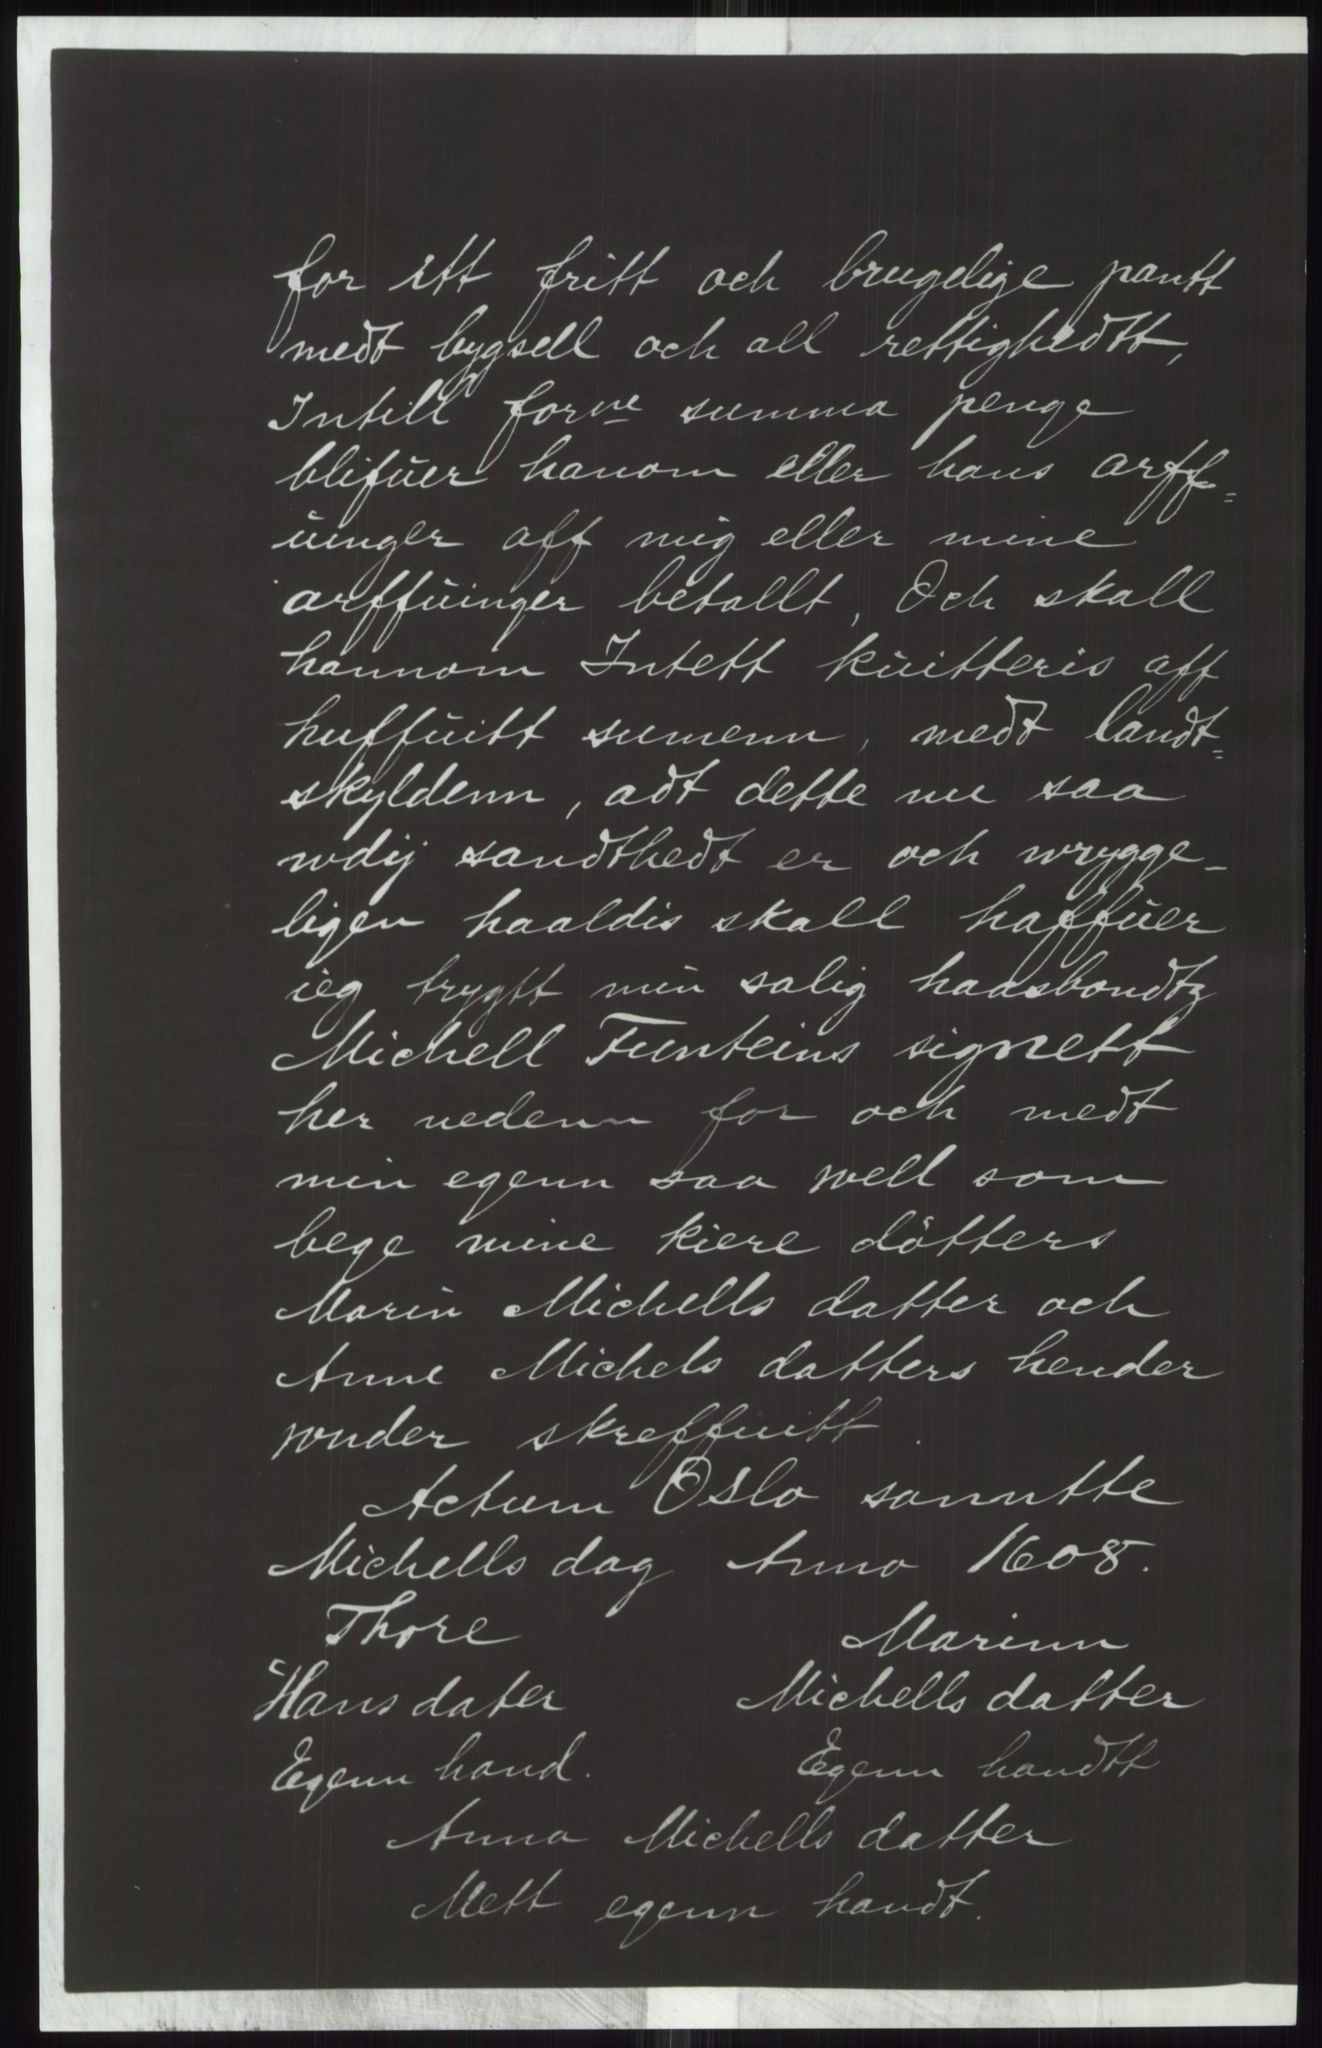 for itt fritt och brugelige pantt
medt bygsell och all rettighedtt,
Intill forne summa penge
blifuer hanom eller hans arff=
uinger aff mig eller mine
arffuinger betallt, Och skall
hannom Intett kuitteris aff
huffuitt sumenn, medt landt=
skyldenn, adt dette nu saa
wdij sandthedt er och wrygge-
ligen haaldis skall haffuer
ieg trygtt min salig haasbondtz
Michell Funteins signett
her nedenn for och medt
min egenn saa well som
bege mine kiere dötters
Marin Michells datter och
Anne Michels datters hender
wnder skreffuitt.
Actum Oslo sanntte
Michells dag Anno 1608.
Thore Marinn
Hans dater Michells datter
Egenn hand. Egenn handtt
Anna Michells datter
Mett egenn handt.